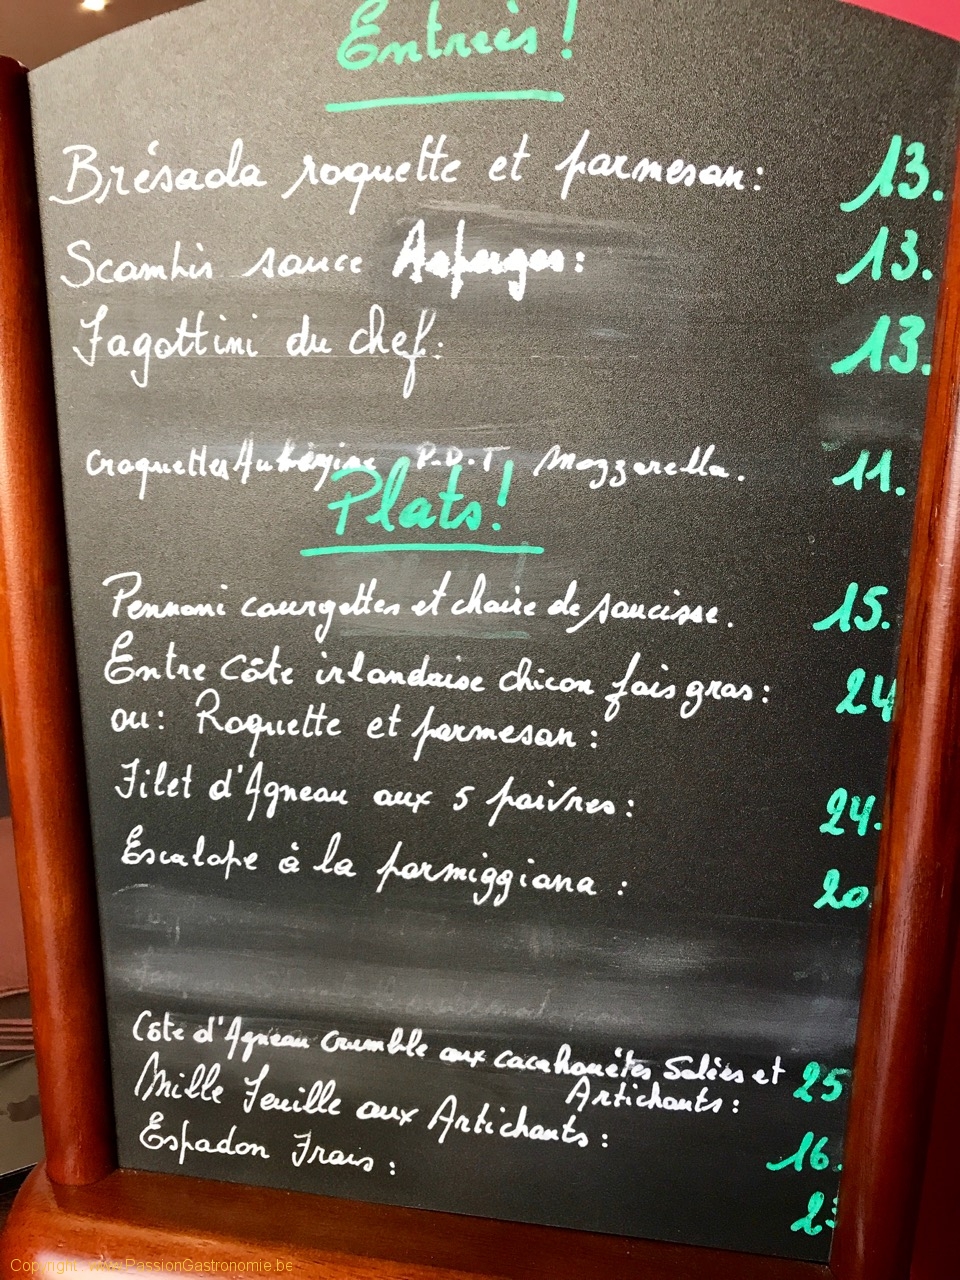 Entrées !
Brésaola roquette et parmesan : 13.
Scampis sauce Asperges : 13.
Fagottini du chef : 13.
Croquettes Aubergine P.D.T Mozzarella. 11.
Plats !
Pennoni courgettes et chaire de saucisse. 15.
Entre Côte irlandaise chicon fois gras : 24
ou : Roquette et parmesan :
Filet d'Agneau aux 5 poivres : 24.
Escalope à la parmiggiana : 20
Côte d'Agneau Crumble aux cacahouètes Salées et 25
Artichauts :
Mille Feuille aux Artichauts : 16.
Espadon Frais :
Copyright PassionGastronomie.be